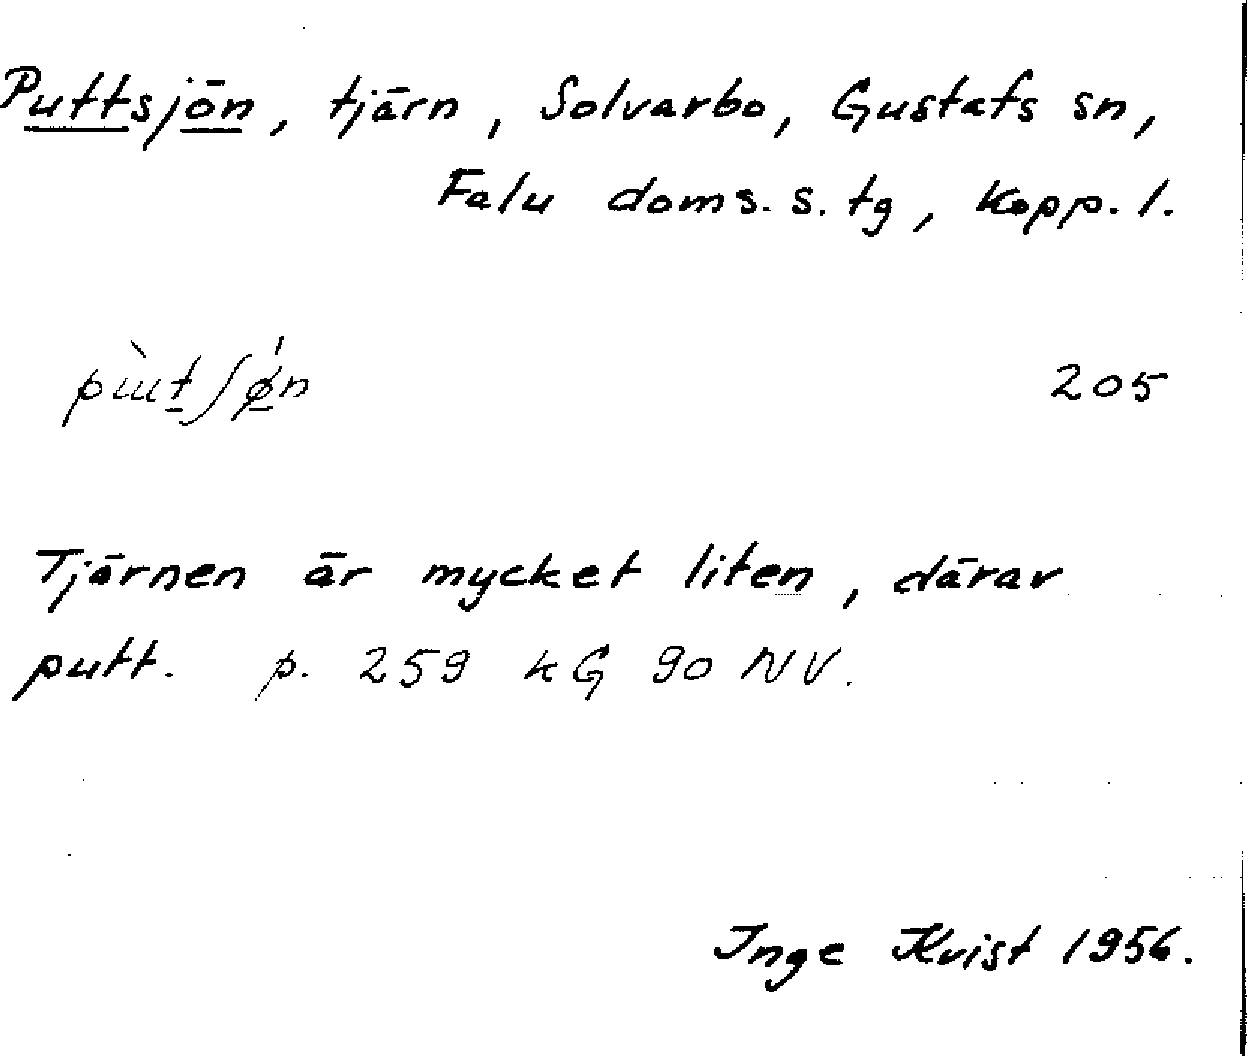 Puttsjön, tjärn, Solvarbo, Gustafs sn,
Falu doms. s. tg, Kopp. l.
205
Tjärnen är mycket liten, därav
putt. p. 259 kG 90 NV.
Inge Kvist 1956.